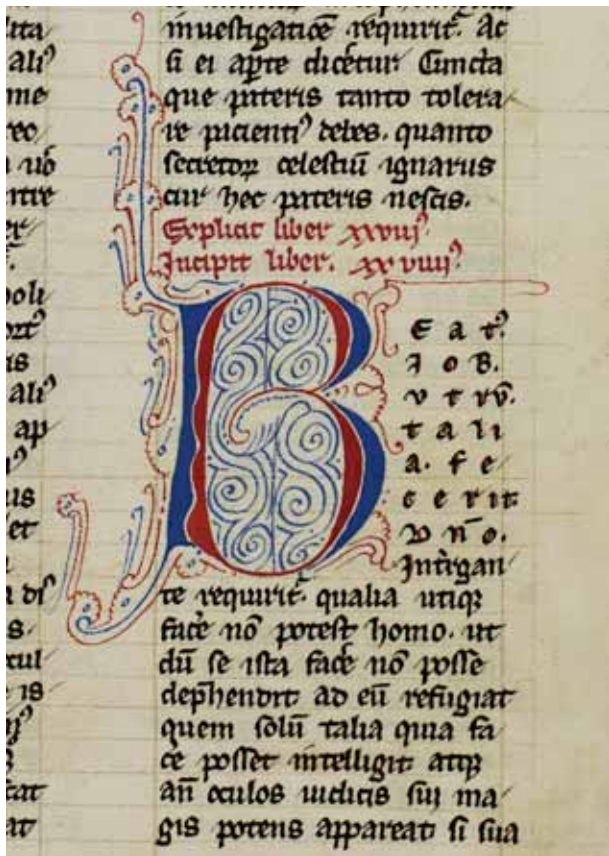 lita
ali⁹
me
reo
ub̄
ntre
er
poli
ort⁹
is
ali⁹
ap
us
et
dis
s.
cul
is
tat
at
inuestigatiōe requirit᷑. Ac
si ei apte dicetur. Cuncta
que pateris tanto tolera
re pacienti⁹ debes. quanto
secretoꝝ celestiū ignarus
cur hec pateris nescis.
Explicit liber xxviij⁹.
Incipit liber. xxviiij⁹
B Eat⁹.
IOB.
vtrū.
tali
a. fe
cerit
dn̄o.
Int̉rogan
te requirit᷑. qualia utiqꝫ
fac̉e nō potest homo. ut
dū se ista fac̉e nō posse
dep̄hendit ad eū refugiat
quem solū talia quia fa
c̉e posset intelligit atqꝫ
an̄ oculos iudicis sui ma
gis potens appareat si sua